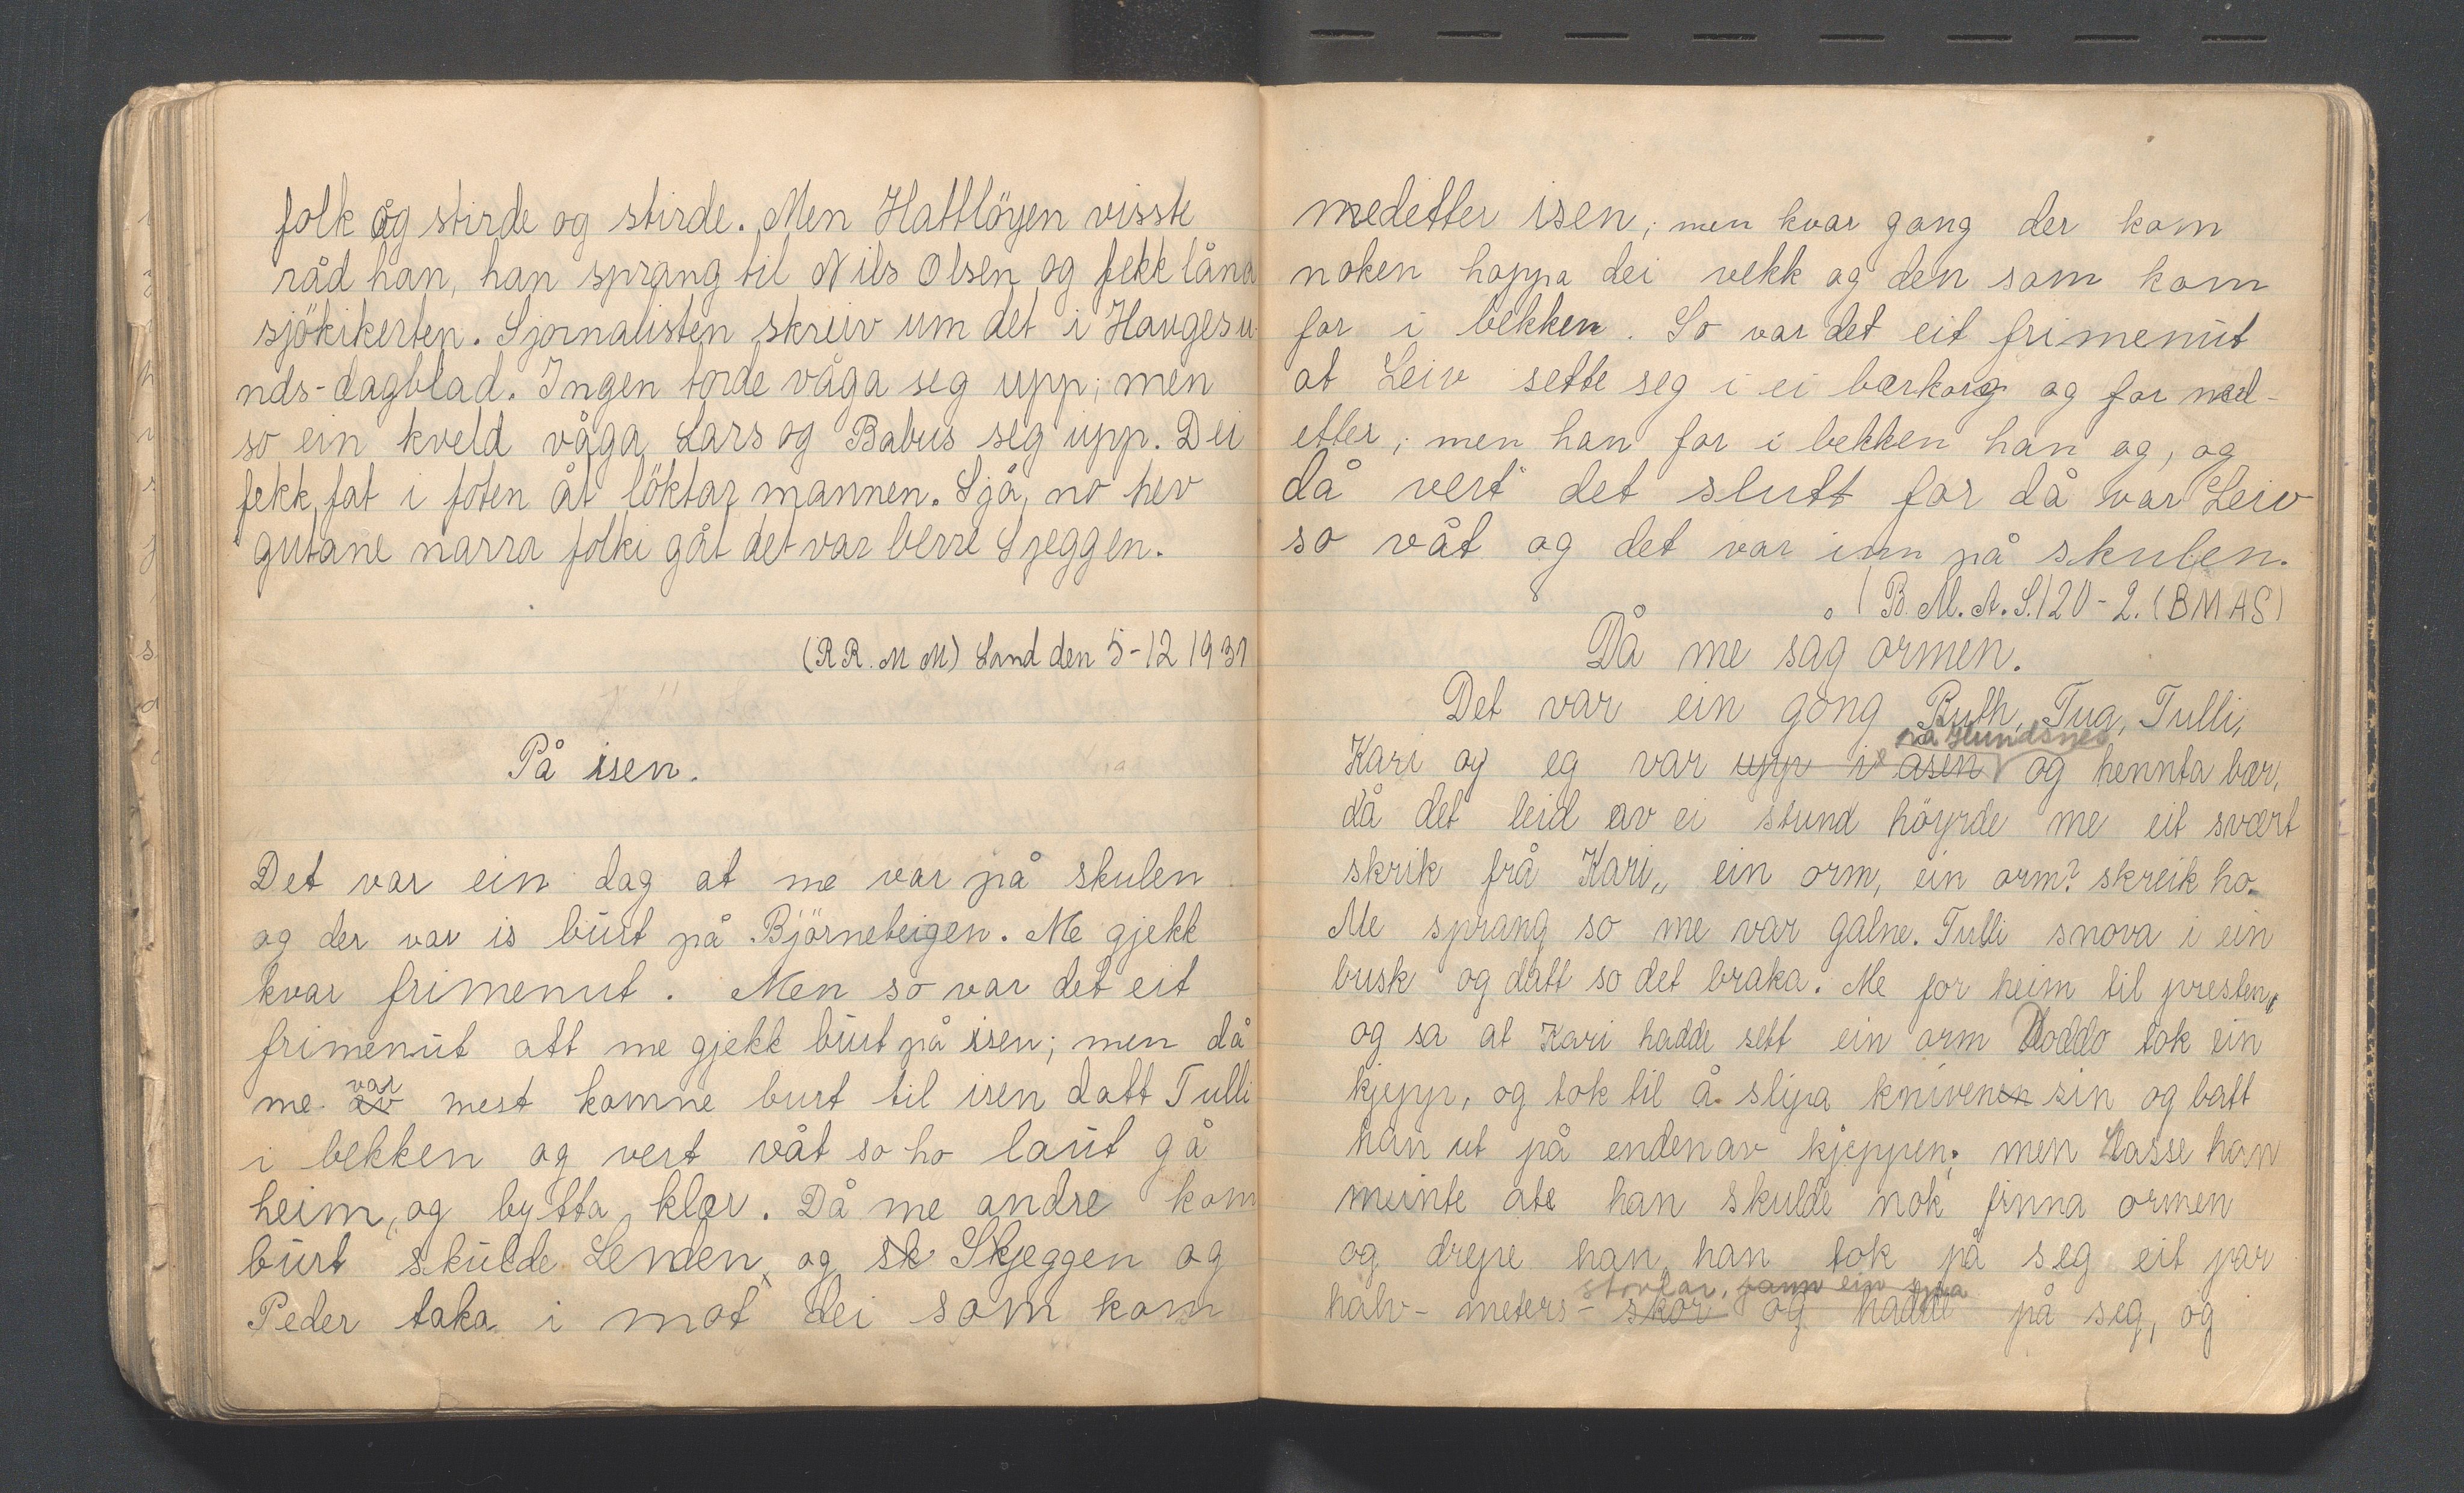 folk og stirde og stirde. Men Hattlöyen visste
råd han, han sprang til Nils Olsen og fekk låna
sjökikerten. Sjornalisten skreiv um det i Haugesu-
nds-dagblad. Ingen torde våga seg upp; men
so ein kveld våga Lars og Babus seg upp. Dei
fekk fat i foten åt löktarmannen. Sjå, no hev
gutane narra folki gåt det var berre Sjeggen.
(R R. M M) Sand den 5-12 1931
På isen.
Det var ein dag at me var på skulen
og der var is burt på Björneteigen. Me gjekk
kvar frimenut. Men so var det eit
frimenut att me gjekk burt på isen; men då
me av var mest komne burt til isen datt Tulli
i bekken og vert våt so ho laut gå
heim, og bytta klær. Då me andre kom
burt skulde Lenden, og sk Skjeggen og
Peder taka i mot dei som kom
medetter isen; men kvar gong der kom
noken hoppa dei vekk og den som kom
for i bekken. So var det eit frimenut
at Leiv sette seg i ei bærkorg og for ned-
etter; men han for i bekken han og, og
då vert det slutt for då var Leiv
so våt og det var inn på skulen.
(B. M. A. S.) 20-2. (BMAS)
Då me såg ormen.
Det var ein gong Ruth, Tua, Tulli,
på Hundsnes
Kari og eg var upp i åsen og hennta bær,
då det leid av ei stund höyrde me eit svært
skrik frå Kari„ ein orm, ein orm? skreik ho.
Me sprang so me var galne. Tulli snova i ein
busk og datt so det braka. Me for heim til presten,
og sa at Kari hadde sett ein orm Doddo tok ein
kjepp, og tok til å slipa knivenen sin og batt
han ut på enden av kjeppen; men Lasse han
meinte ate han skulde nok finna ormen
og drepe han, han tok på seg eit par
stovlar, som ein
halv-meters-skor og hadde på seg, og